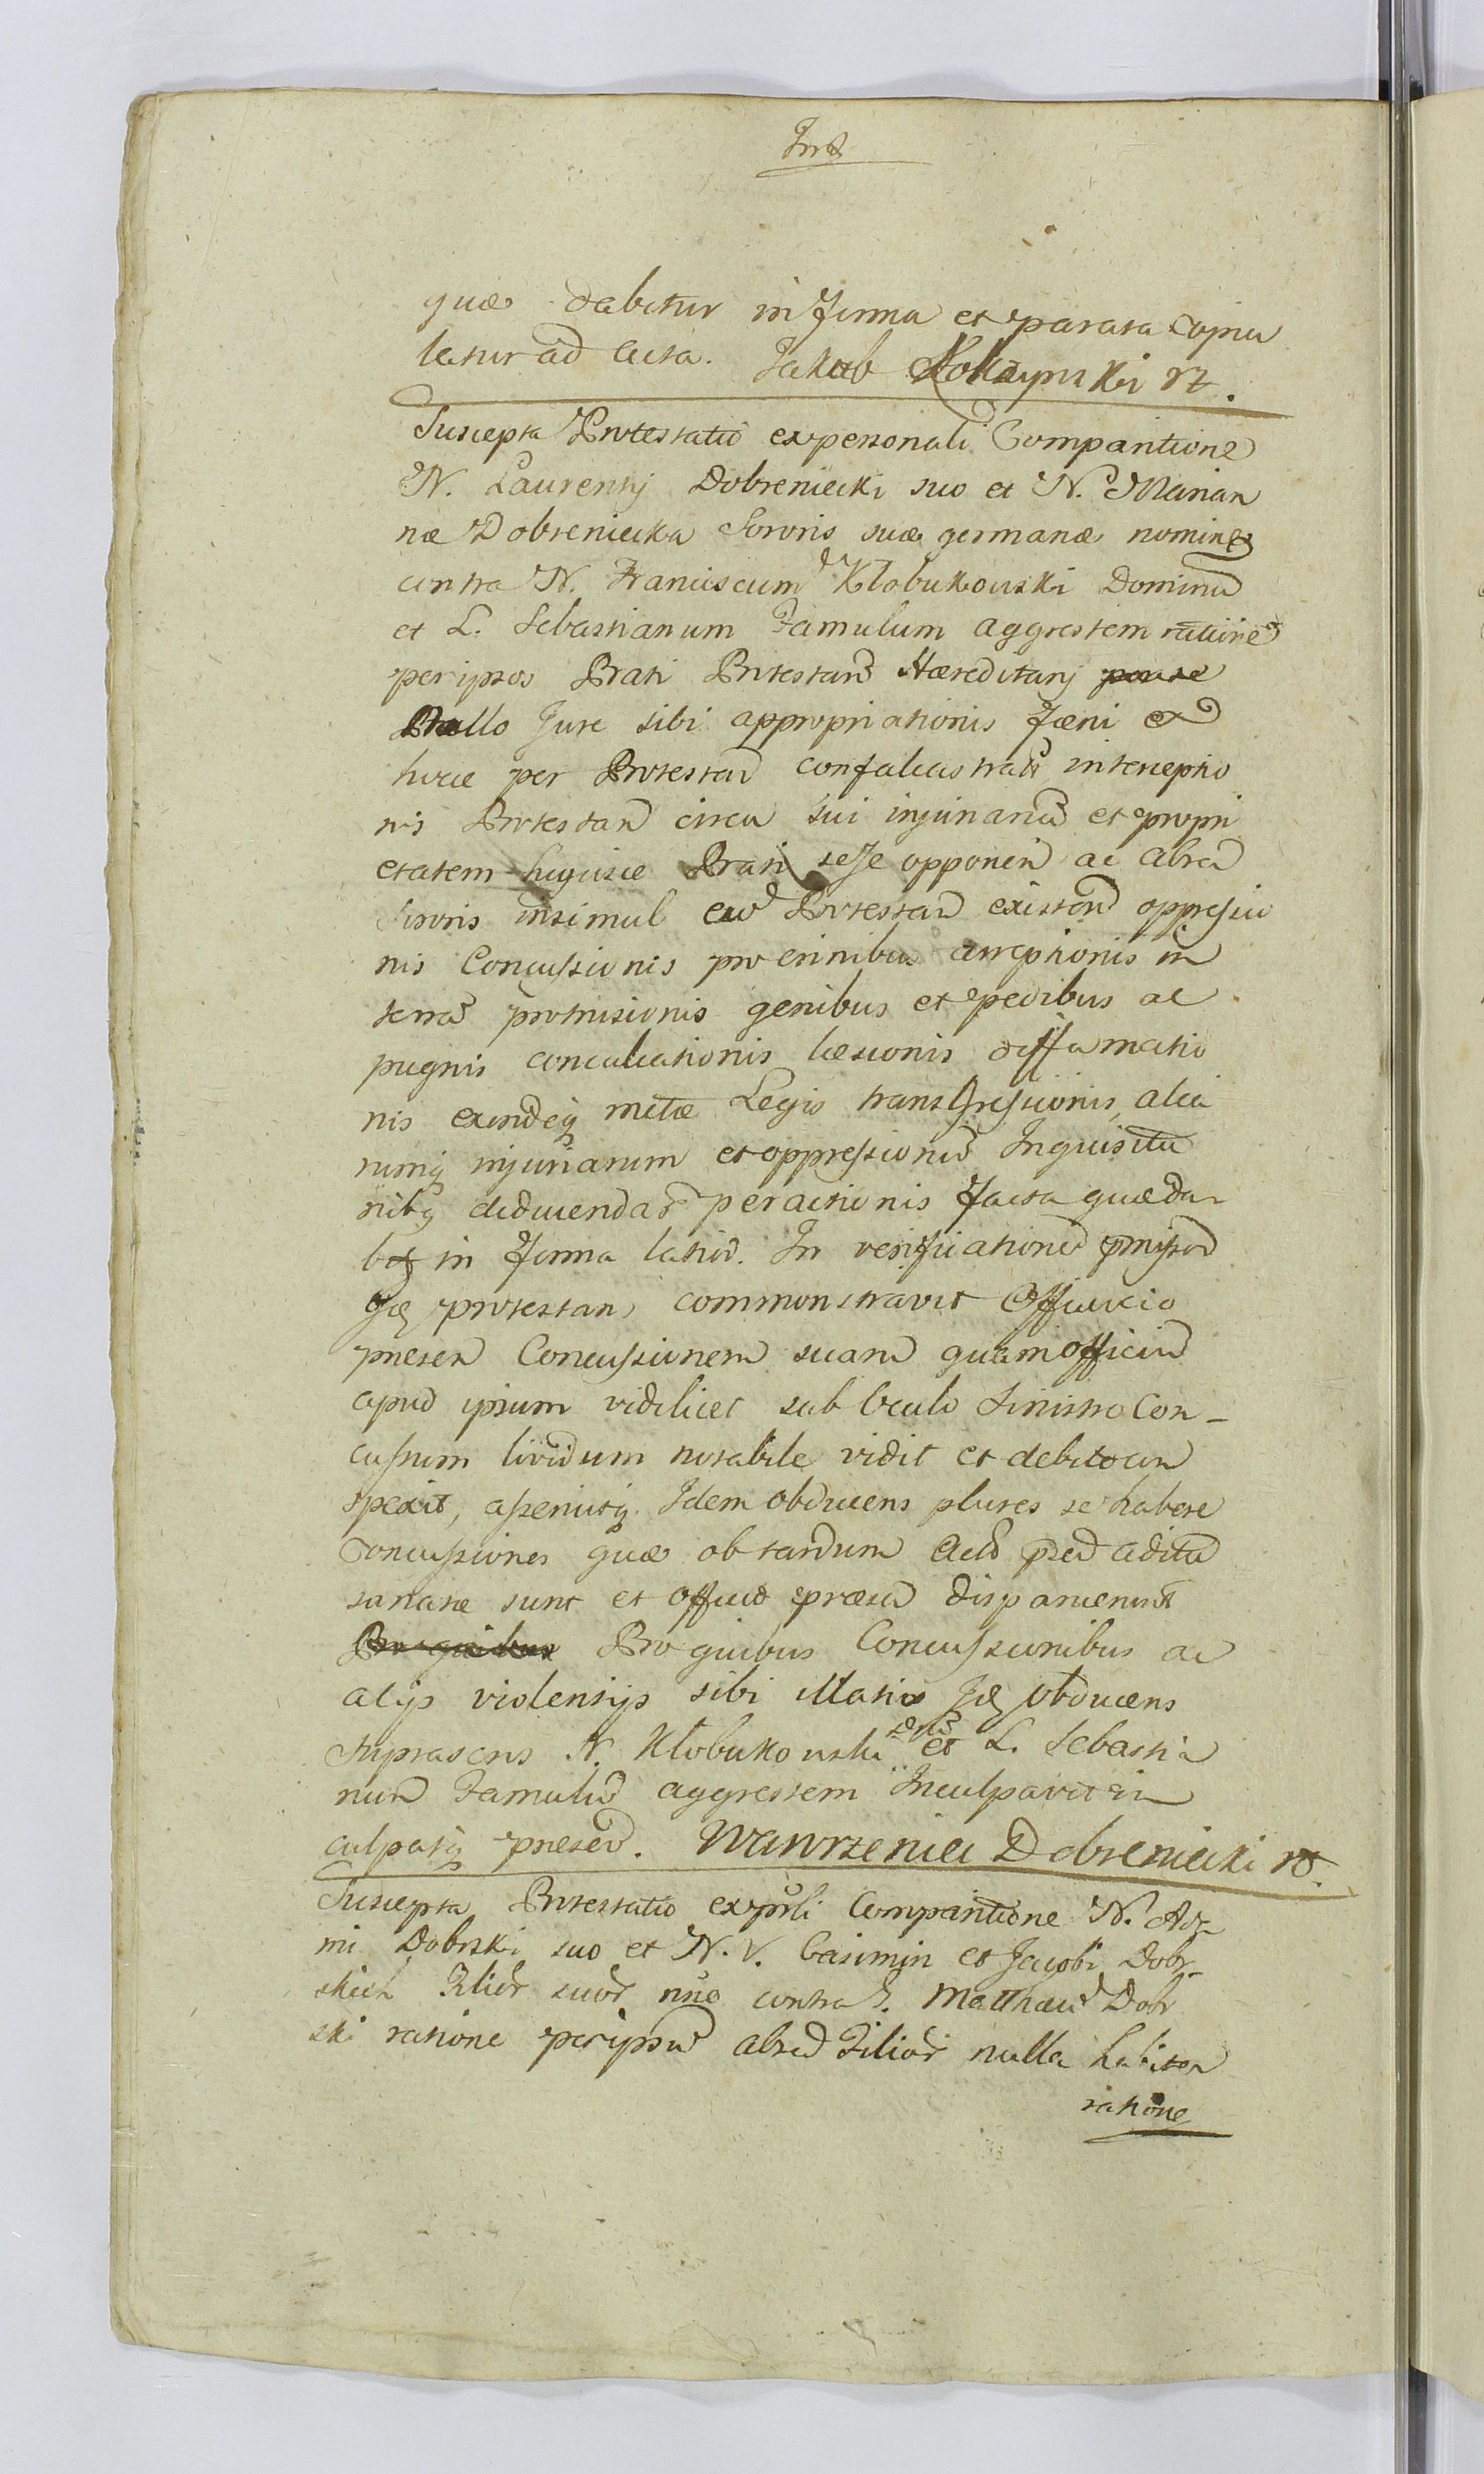 quæ dabitur in Forma et parata copiu
latur ad Acta. Jakub
Suscepta Protestatio ex personali Comparitione
N. Laurentij Dobreniecki suo et N. Marian
næ Dobreniecka Sororis suæ germanæ nomine
contra N. Franciscum Kłobukowski Dominū
et L. Sebastianum Famulum aggrestem ratiōne
per ipsos Prati Protestan Hæreditarij
Nullo Jure sibi appropriationis Fæni ex
hocce per Protestan confalcastrati interceptio
nis Protestan circa sui injuriam et propri
etatem hujusce Prati sese opponen ac
Sororis insimul cum Protestan existen oppressio
nis Concussionis pro crinibus arreptionis in
terram protrusionis genibus et pedibus ac
pugnis conculcationis læsionis diffamatio
nis exindeq metæ Legis transgressionis alia
rumq injuriarum et oppressionum Inquisitio
nibq deducendar peractionis Facta quæ da
btr in Forma latior. In verificationem præmissor
Jdē protestans commonstravit Officio
presen Concussionem suam quam officium
apud ipsum videlicet sub Oculo Sinistro Con-
cussum lividum notabile vidit et debite con
spexit, asseruitq Idem obducens plures se habere
Concussiones quæ ob tardum Actor præd aditum
sanatæ sunt et officio præsen disparuerunt
Pro quibus Pro quibus Concussionibus ac
alijs violentijs sibi illatis Jdē obducens
suprascris N. Kłobukowski et L. Sebastia
num Famulum aggrestem Inculpavit in
culpatq presen. Wawrzeniec Dobreniecki
Suscepta Protestatio ex prsli Comparitione N. Ada
mi Dobrski suo et N. V. Casimiri et Jacobi Dobr
skich Filior suor nne contra G. Matthæum Dobr
ski ratione per ipsum Filior nulla habita
ratione